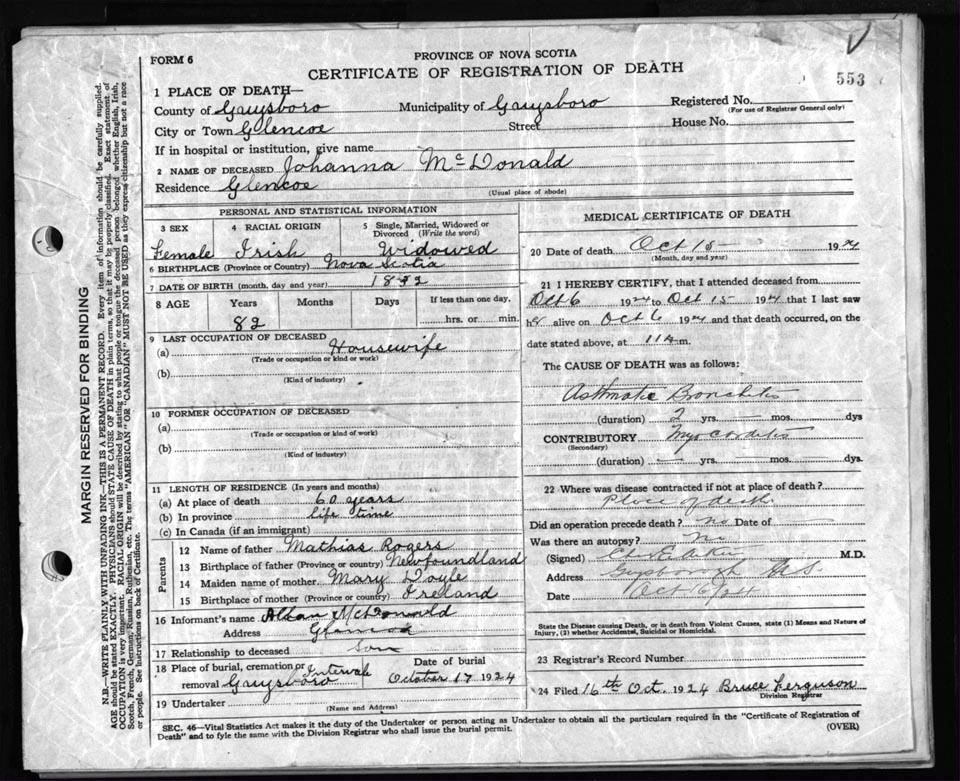 FORM 6
PROVINCE OF NOVA SCOTIA
CERTIFICATE OF REGISTRATION OF DEATH
553
1 PLACE OF DEATH—
County of Guysboro Municipality of Guysboro Registered No.
(For use of Registrar General only)
City or Town Glencoe Street House No.
If in hospital or institution, give name
2 NAME OF DECEASED Johanna McDonald
Residence Glencoe
(Usual place of abode)
PERSONAL AND STATISTICAL INFORMATION
3 SEX 4 RACIAL ORIGIN 5 Single, Married, Widowed or
Divorced (Write the word)
Female Irish Widowed
6 BIRTHPLACE (Province or Country) Nova Scotia
7 DATE OF BIRTH (month, day and year) 1842
8 AGE Years Months Days If less than one day.
82 hrs. or min.
9 LAST OCCUPATION OF DECEASED
(a) Housewife
(Trade or occupation or kind or work)
(b)
(Kind of industry)
10 FORMER OCCUPATION OF DECEASED
(a)
(Trade or occupation or kind of work)
(b)
(Kind of industry)
11 LENGTH OF RESIDENCE (In years and months)
(a) At place of death 60 years
(b) In province life time
(c) In Canada (if an immigrant)
Parents
12 Name of father Mathias Rogers
13 Birthplace of father (Province or country) Newfoundland
14 Maiden name of mother Mary Doyle
15 Birthplace of mother (Province or country) Ireland
16 Informant's name Allan McDonald
Address
17 Relationship to deceased son
18 Place of burial, cremation or Intervale Date of burial
removal Guysboro October 17 1924
19 Undertaker
(Name and Address)
MEDICAL CERTIFICATE OF DEATH
20 Date of death Oct 15 1924
(Month, day and year)
21 I HEREBY CERTIFY, that I attended deceased from
Oct 6 1924 to Oct 15 1924 that I last saw
her alive on Oct 6 1924 and that death occurred, on the
date stated above, at 11 A m.
The CAUSE OF DEATH was as follows:
Asthmatic Bronchitis
(duration) 2 yrs. mos. dys
CONTRIBUTORY Myocarditis
(Secondary)
(duration) yrs. mos. dys.
22 Where was disease contracted if not at place of death?
Place of death
Did an operation precede death? no Date of
Was there an autopsy? No
(Signed) M.D.
Address Guysborough N.S.
Date Oct 16/24
State the Disease causing Death, or in death from Violent Causes, state (1) Means and Nature of
Injury, (2) whether Accidental, Suicidal or Homicidal.
23 Registrar's Record Number
24 Filed 16th Oct. 1924 Bruce Ferguson
Division Registrar
SEC. 46—Vital Statistics Act makes it the duty of the Undertaker or person acting as Undertaker to obtain all the particulars required in the "Certificate of Registration of
Death" and to fyle the same with the Division Registrar who shall issue the burial permit.
(OVER)
MARGIN RESERVED FOR BINDING
N.B.—WRITE PLAINLY WITH UNFADING INK—THIS IS A PERMANENT RECORD. Every item of information should be carefully supplied.
AGE should be stated EXACTLY. PHYSICIANS should STATE CAUSE OF DEATH in plain terms, so that it may be properly classified. Exact statement of
OCCUPATION is very important. RACIAL ORIGIN will be described by stating to what people or tongue the deceased person belonged whether English, Irish,
Scotch, French, German, Russian, Ruthenian, etc. The terms "AMERICAN" OR "CANADIAN" MUST NOT BE USED as they express citizenship but not a race
or people. See instructions on back of Certificate.